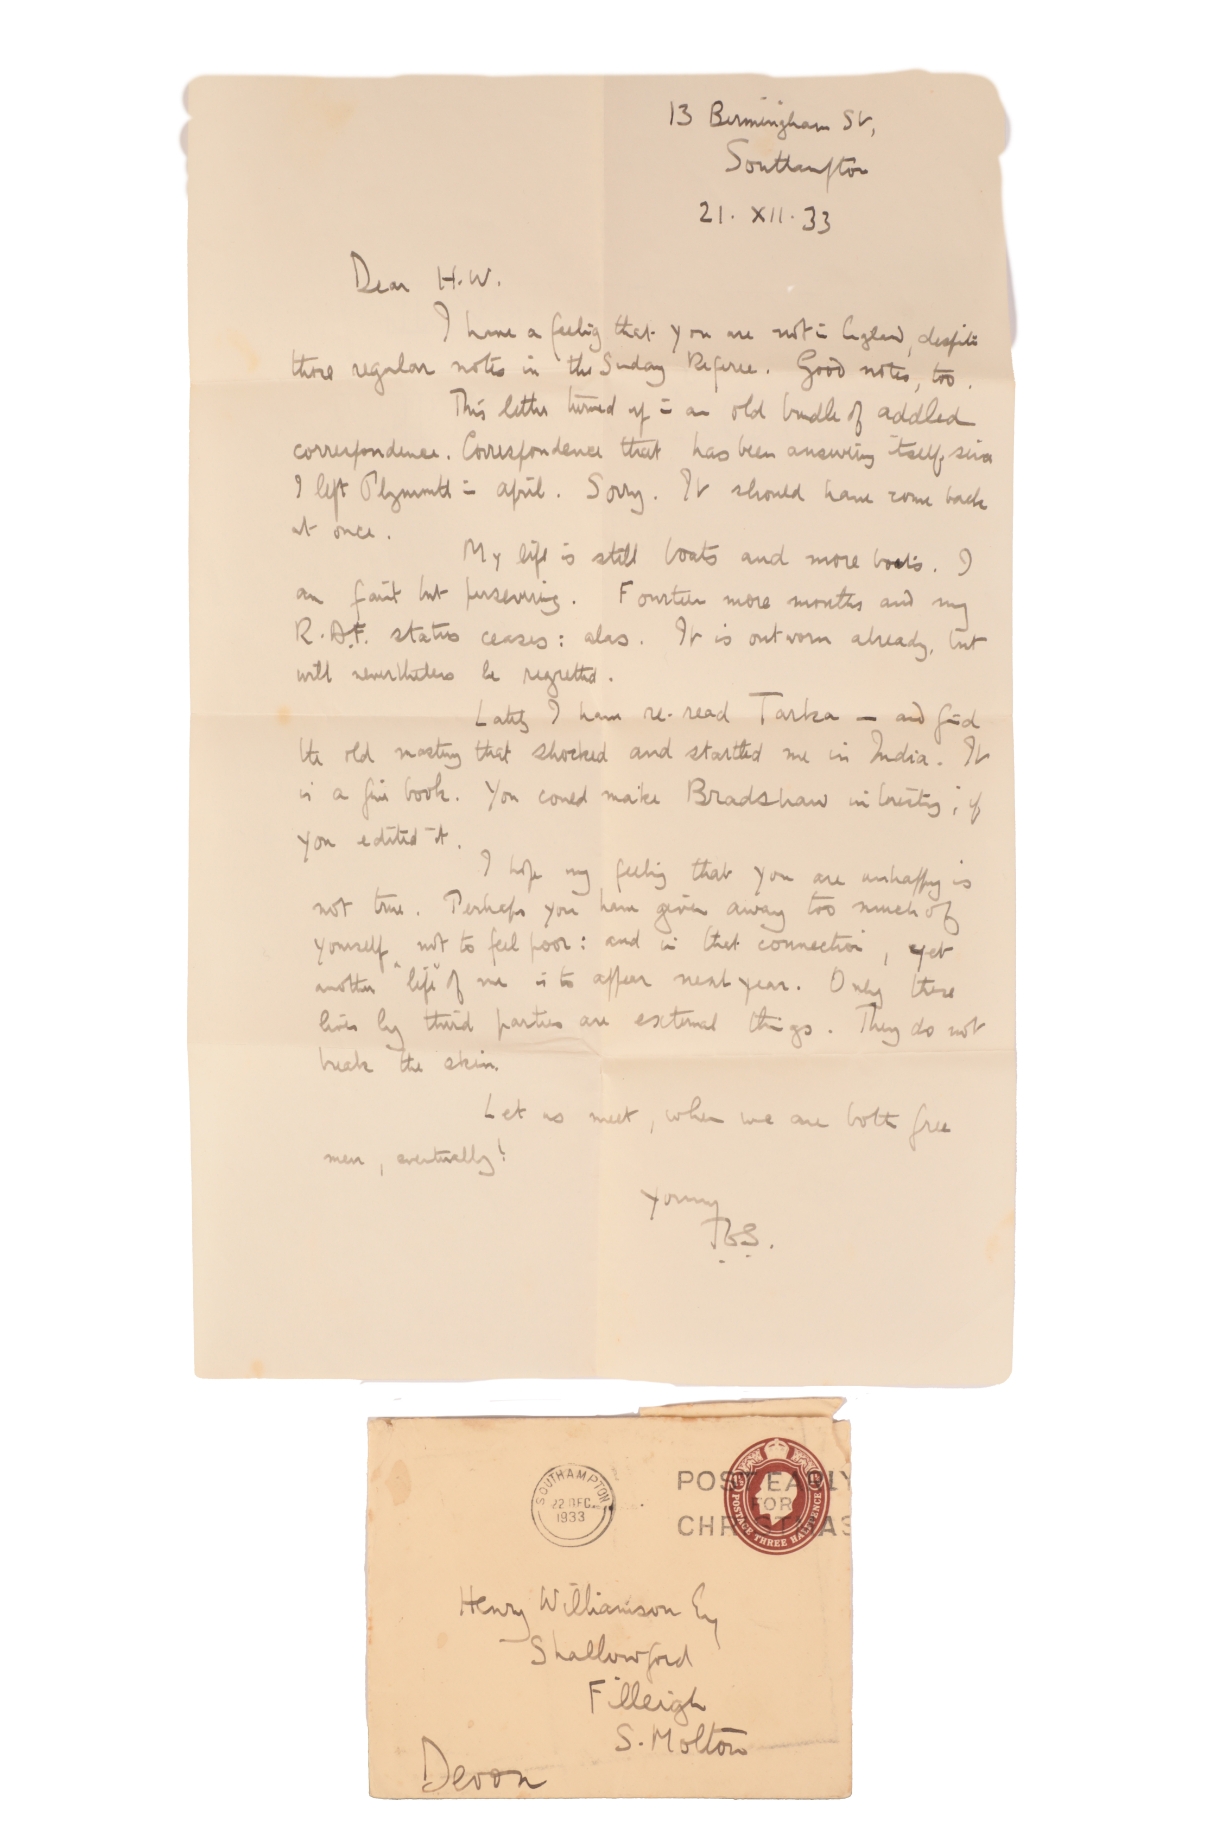 13 Birmingham St,
Southampton
21. XII. 33
Dear H.W.
I have a feeling that you are not in England, despite
those regular notes in the Sunday Referee. Good notes, too.
This letter turned up in an old bundle of addled
correspondence. Correspondence that has been answering itself, since
I left Plymouth in April. Sorry. It should have come back
at once.
My life is still boats and more boats. I
am faint but persevering. Fourteen more months and my
R.A.F. status ceases: alas. It is outworn already, but
will nevertheless be regretted.
Lately I have re-read Tarka — and find
the old mastery that shocked and startled me in India. It
is a fine book. You could make Bradshaw interesting, if
you edited it.
I hope my feeling that you are unhappy is
not true. Perhaps you have given away too much of
yourself, not to feel poor: and in that connection, yet
another "life" of me is to appear next year. Only these
lives by third parties are external things. They do not
break the skin.
Let us meet, when we are both free
men, eventually!
Yours
T.E.S.
SOUTHAMPTON
22 DEC
1933
POST EARLY
FOR
CHRISTMAS
POSTAGE THREE HALFPENCE
Henry Williamson Esq
Shallowford
Filleigh
S. Molton
Devon